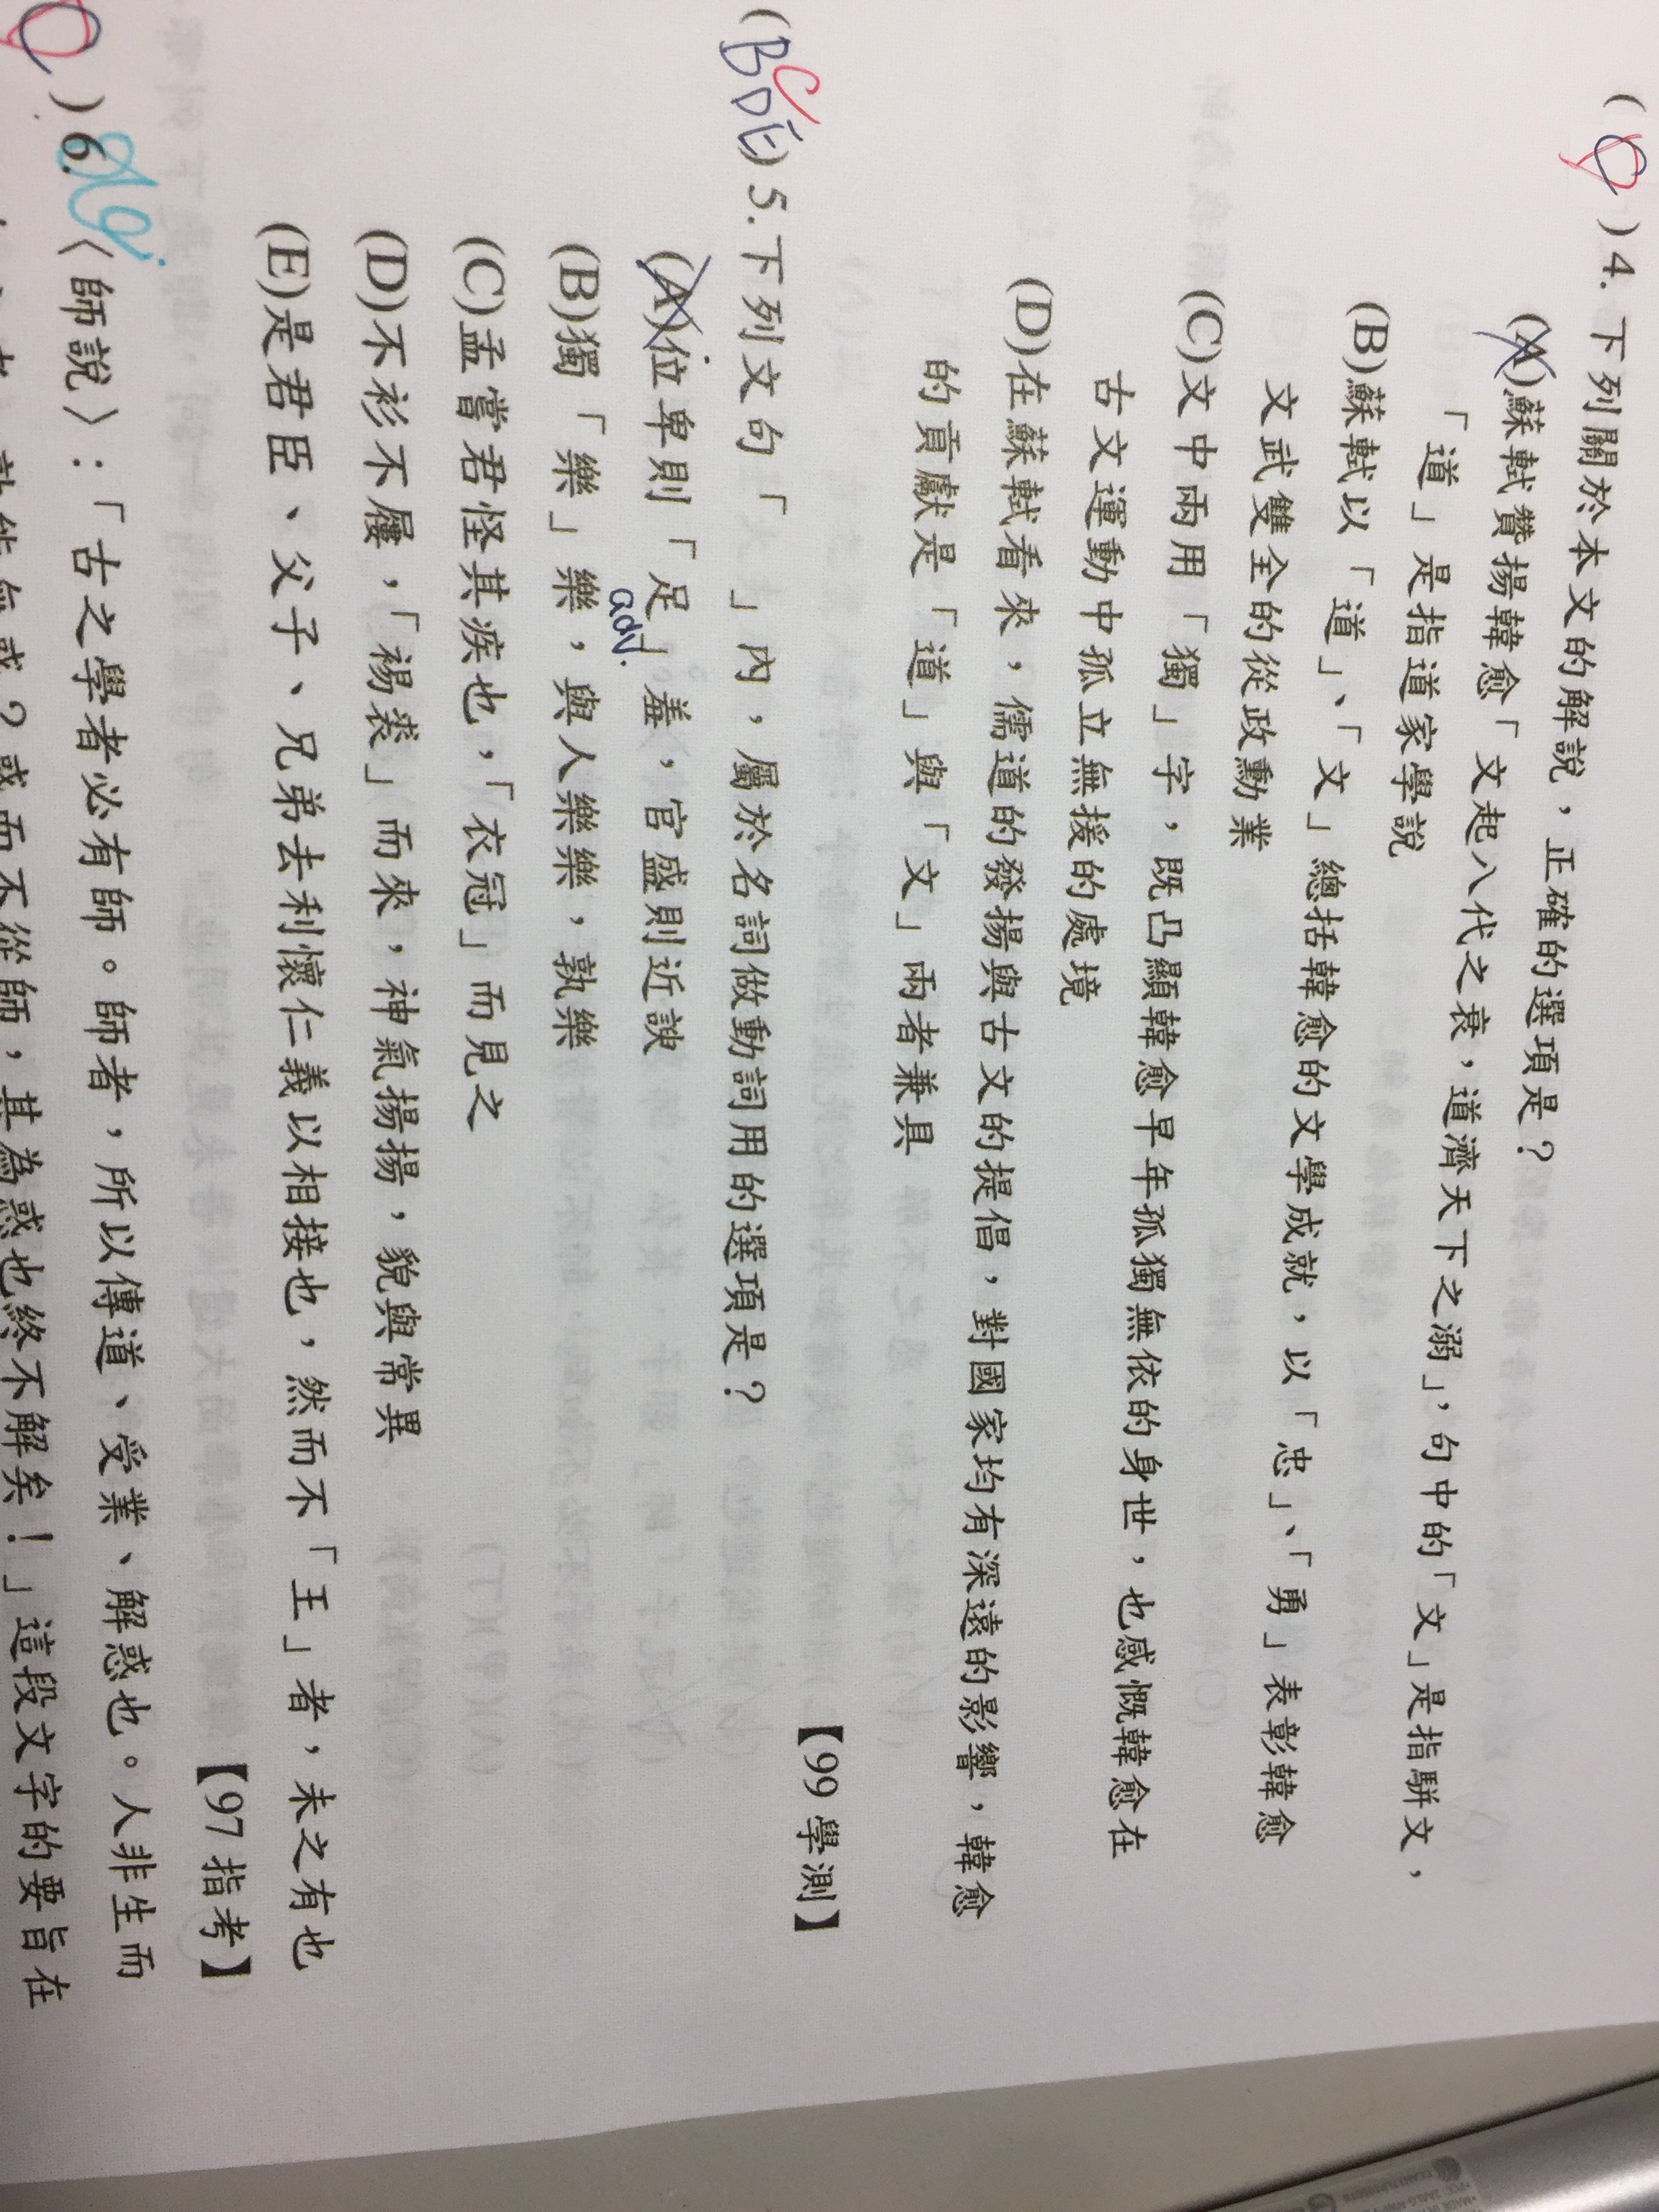 (D)4.下列關於本文的解說，正確的選項是？
(A)蘇軾贊揚韓愈「文起八代之衰，道濟天下之溺」，句中的「文」是指駢文，
「道」是指道家學說
(B)蘇軾以「道」、「文」總括韓愈的文學成就，以「忠」、「勇」表彰韓愈
文武雙全的從政勳業
(C)文中兩用「獨」字，既凸顯韓愈早年孤獨無依的身世，也感慨韓愈在
古文運動中孤立無援的處境
(D)在蘇軾看來，儒道的發揚與古文的提倡，對國家均有深遠的影響，韓愈
的貢獻是「道」與「文」兩者兼具
【99學測】
(BCDE)5.下列文句「　」內，屬於名詞做動詞用的選項是？
(A)位卑則「足」羞，官盛則近諛
adv.
(B)獨「樂」樂，與人樂樂，孰樂
(C)孟嘗君怪其疾也，「衣冠」而見之
(D)不衫不屨，「裼裘」而來，神氣揚揚，貌與常異
(E)是君臣、父子、兄弟去利懷仁義以相接也，然而不「王」者，未之有也
【97指考】
)6.〈師說〉：「古之學者必有師。師者，所以傳道、受業、解惑也。人非生而
孰能無惑？惑而不從師，其為惑也終不解矣！」這段文字的要旨在